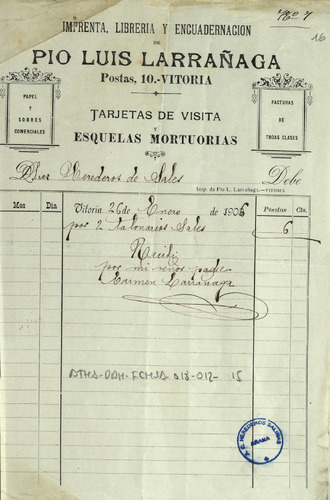 16
IMPRENTA, LIBRERIA Y ENCUADERNACION
DE
PIO LUIS LARRAÑAGA
Postas, 10.-VITORIA
PAPEL
Y
SOBRES
COMERCIALES
TARJETAS DE VISITA
Y
ESQUELAS MORTUORIAS
FACTURAS
DE
TODAS CLASES
Herederos de Sales
Debe
Imp. de Pio L. Larrañaga.-VITORIA
Mes Dia Vitoria 26 de Enero de 1906 Pesetas Cts.
por 2 talonarios Sales 6
Recibí
por mi señor padre
Carmen Larrañaga
ATHA-DAH-FCHSA-018-012- 15
HEREDEROS SALINAS
ARABA